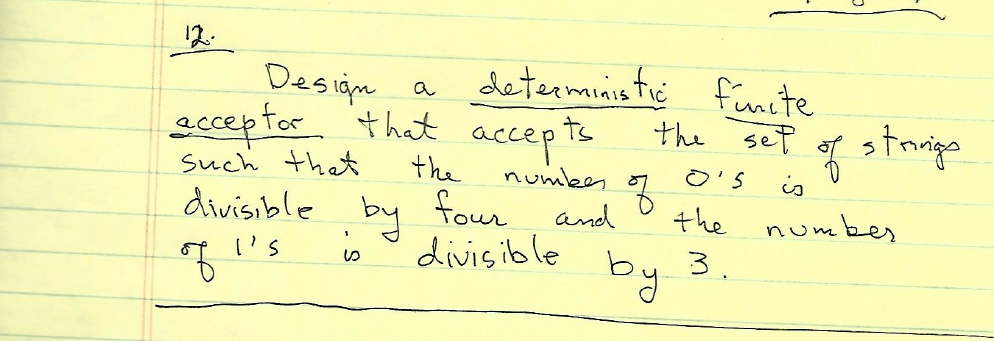 12.
Design a deterministic finite
acceptor that accepts the set of strings
such that the number of 0's is
divisible by four and the number
of 1's is divisible by 3.